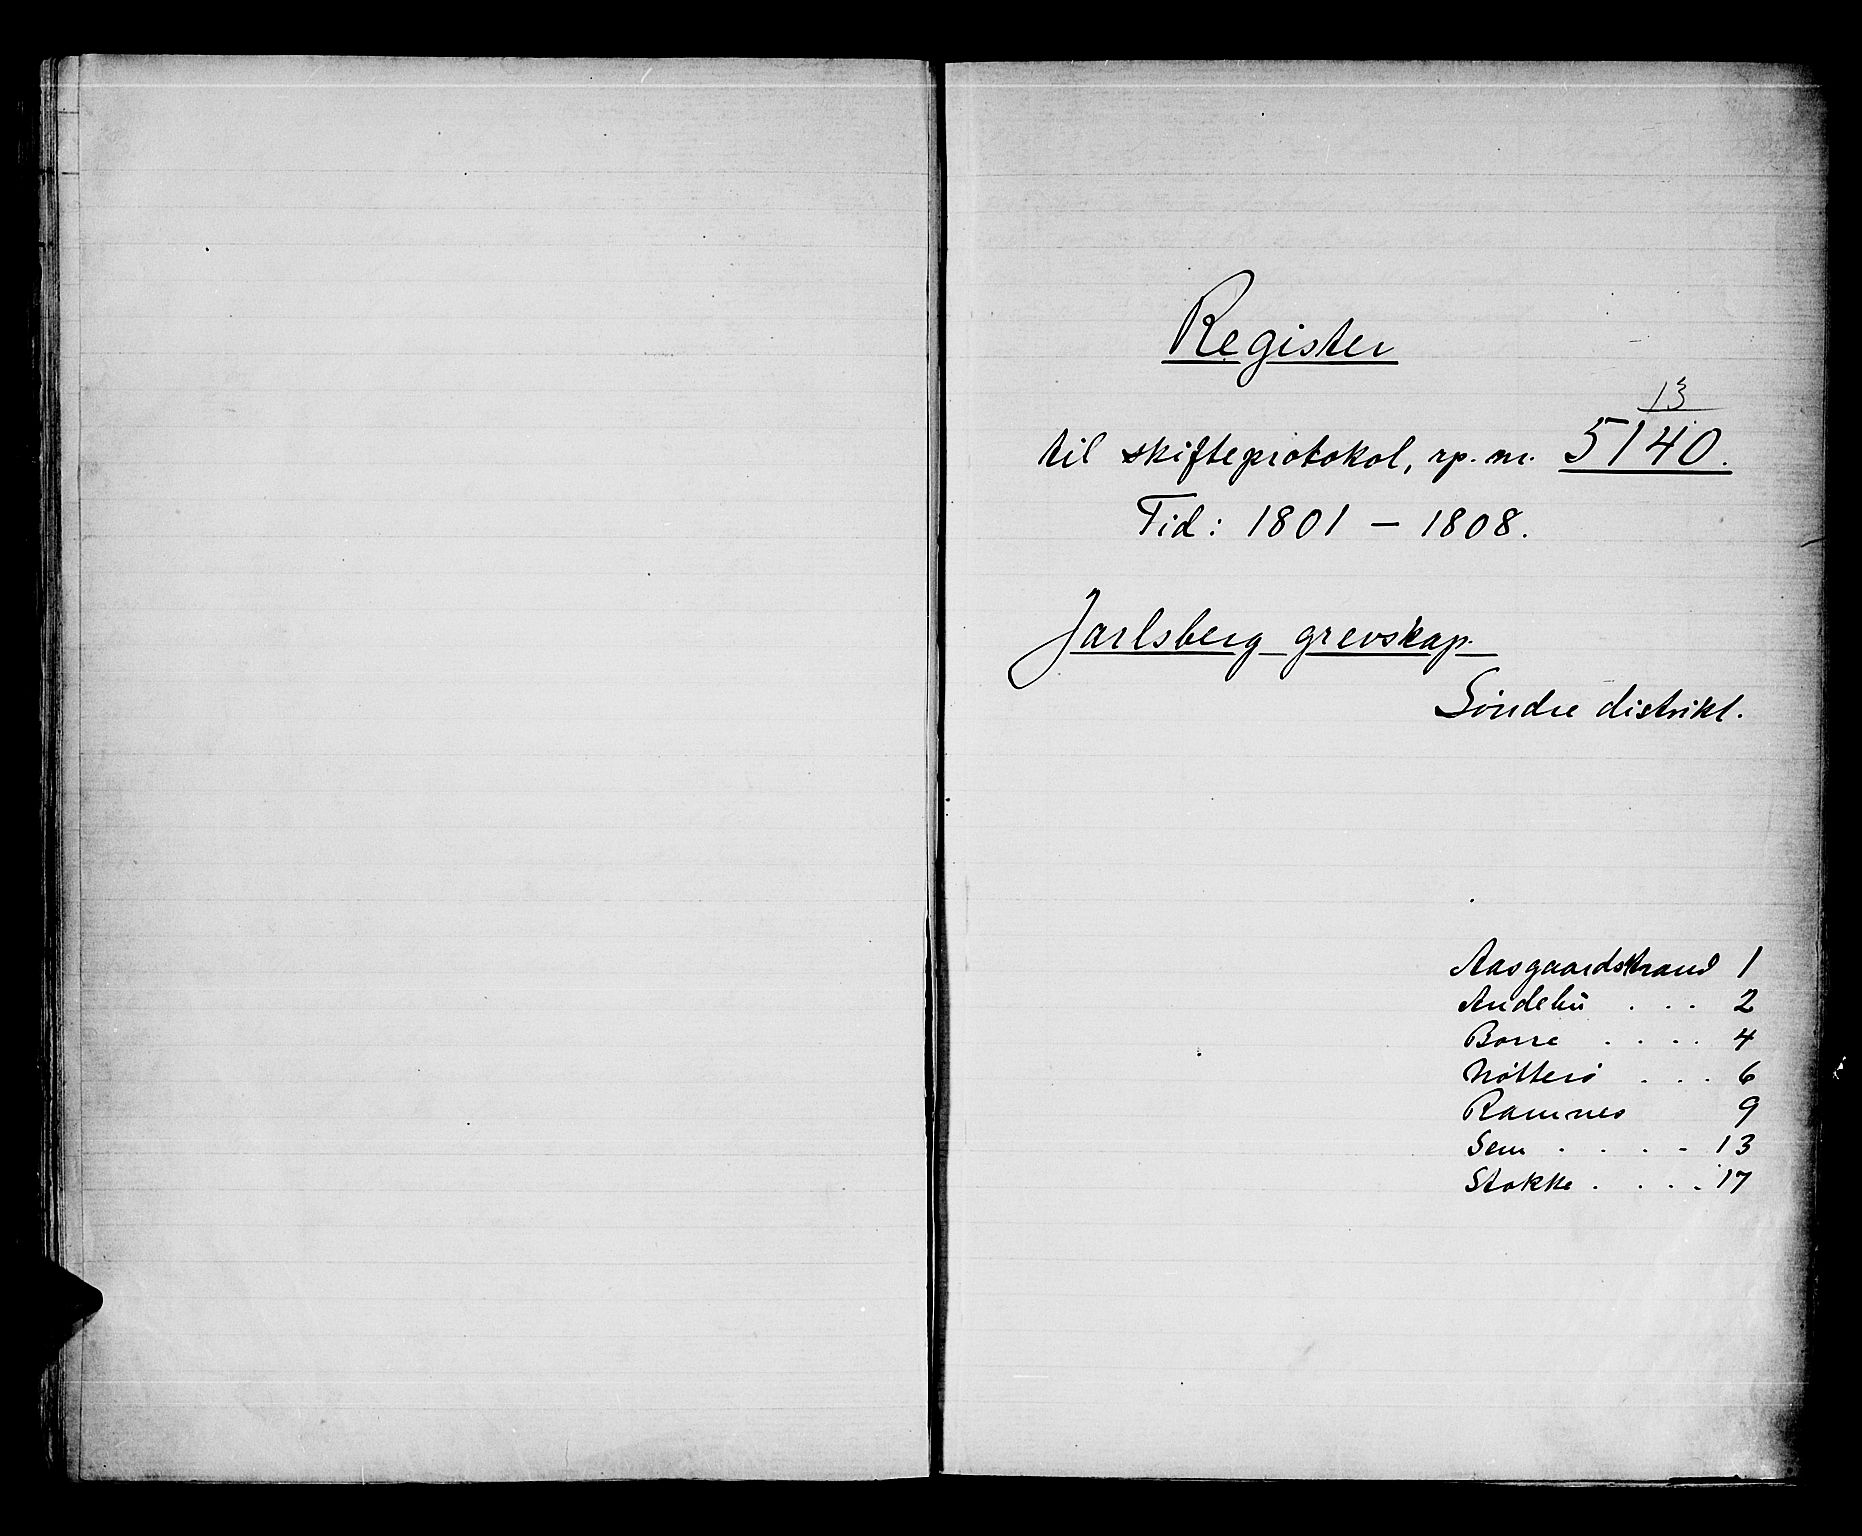 Register
13
til skifteprotokol, rp. nr. 5140.
Tid: 1801 – 1808.
Jarlsberg grevskap.
Søndre distrikt.
Aasgaardstrand 1
Andebu . . . 2
Borre . . . . 4
Nøtterø . . . 6
Ramnes 9
Sem . . . . 13
Stokke . . . . 17